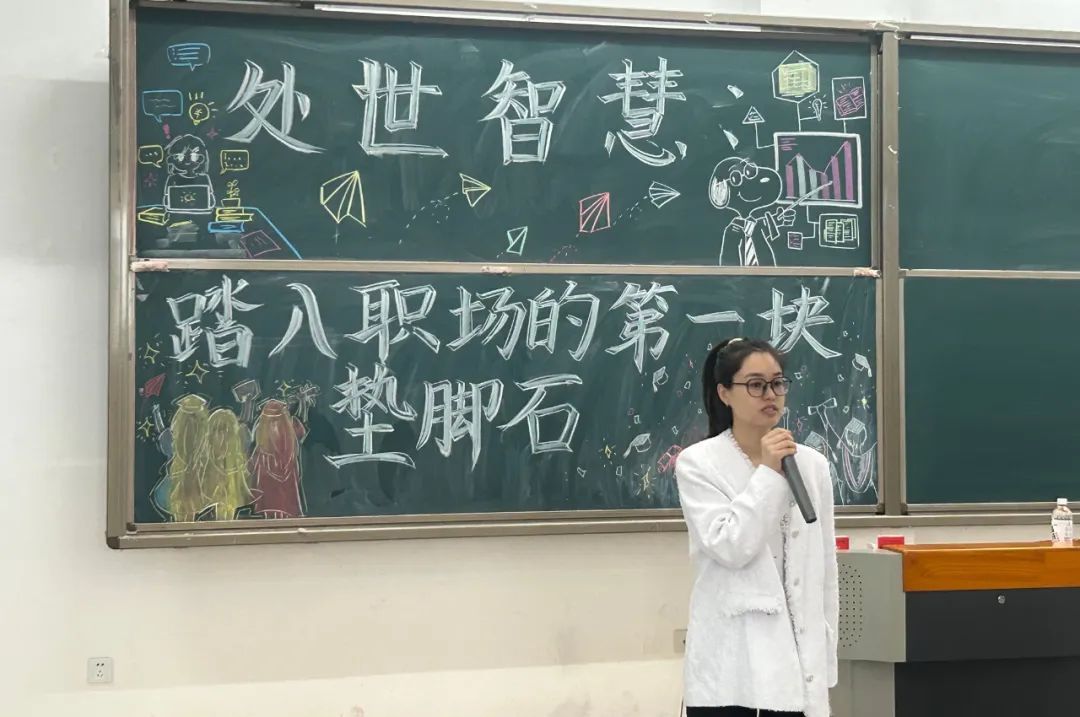 处世智慧
踏入职场的第一块
垫脚石